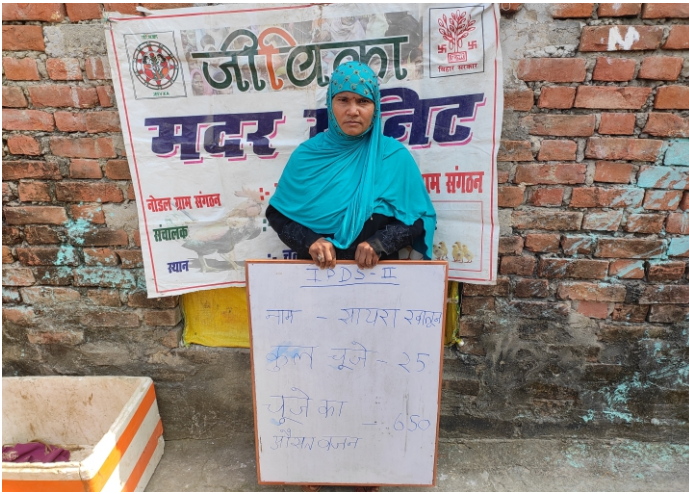 जीविका
बिहार सरकार
मदर
नोडल ग्राम संगठन
ग्राम संगठन
संचालक
स्थान
N
IPDS-II
नाम - सायरा खातून
कुल चूजे - 25
चूजे का
औसत वजन - 650